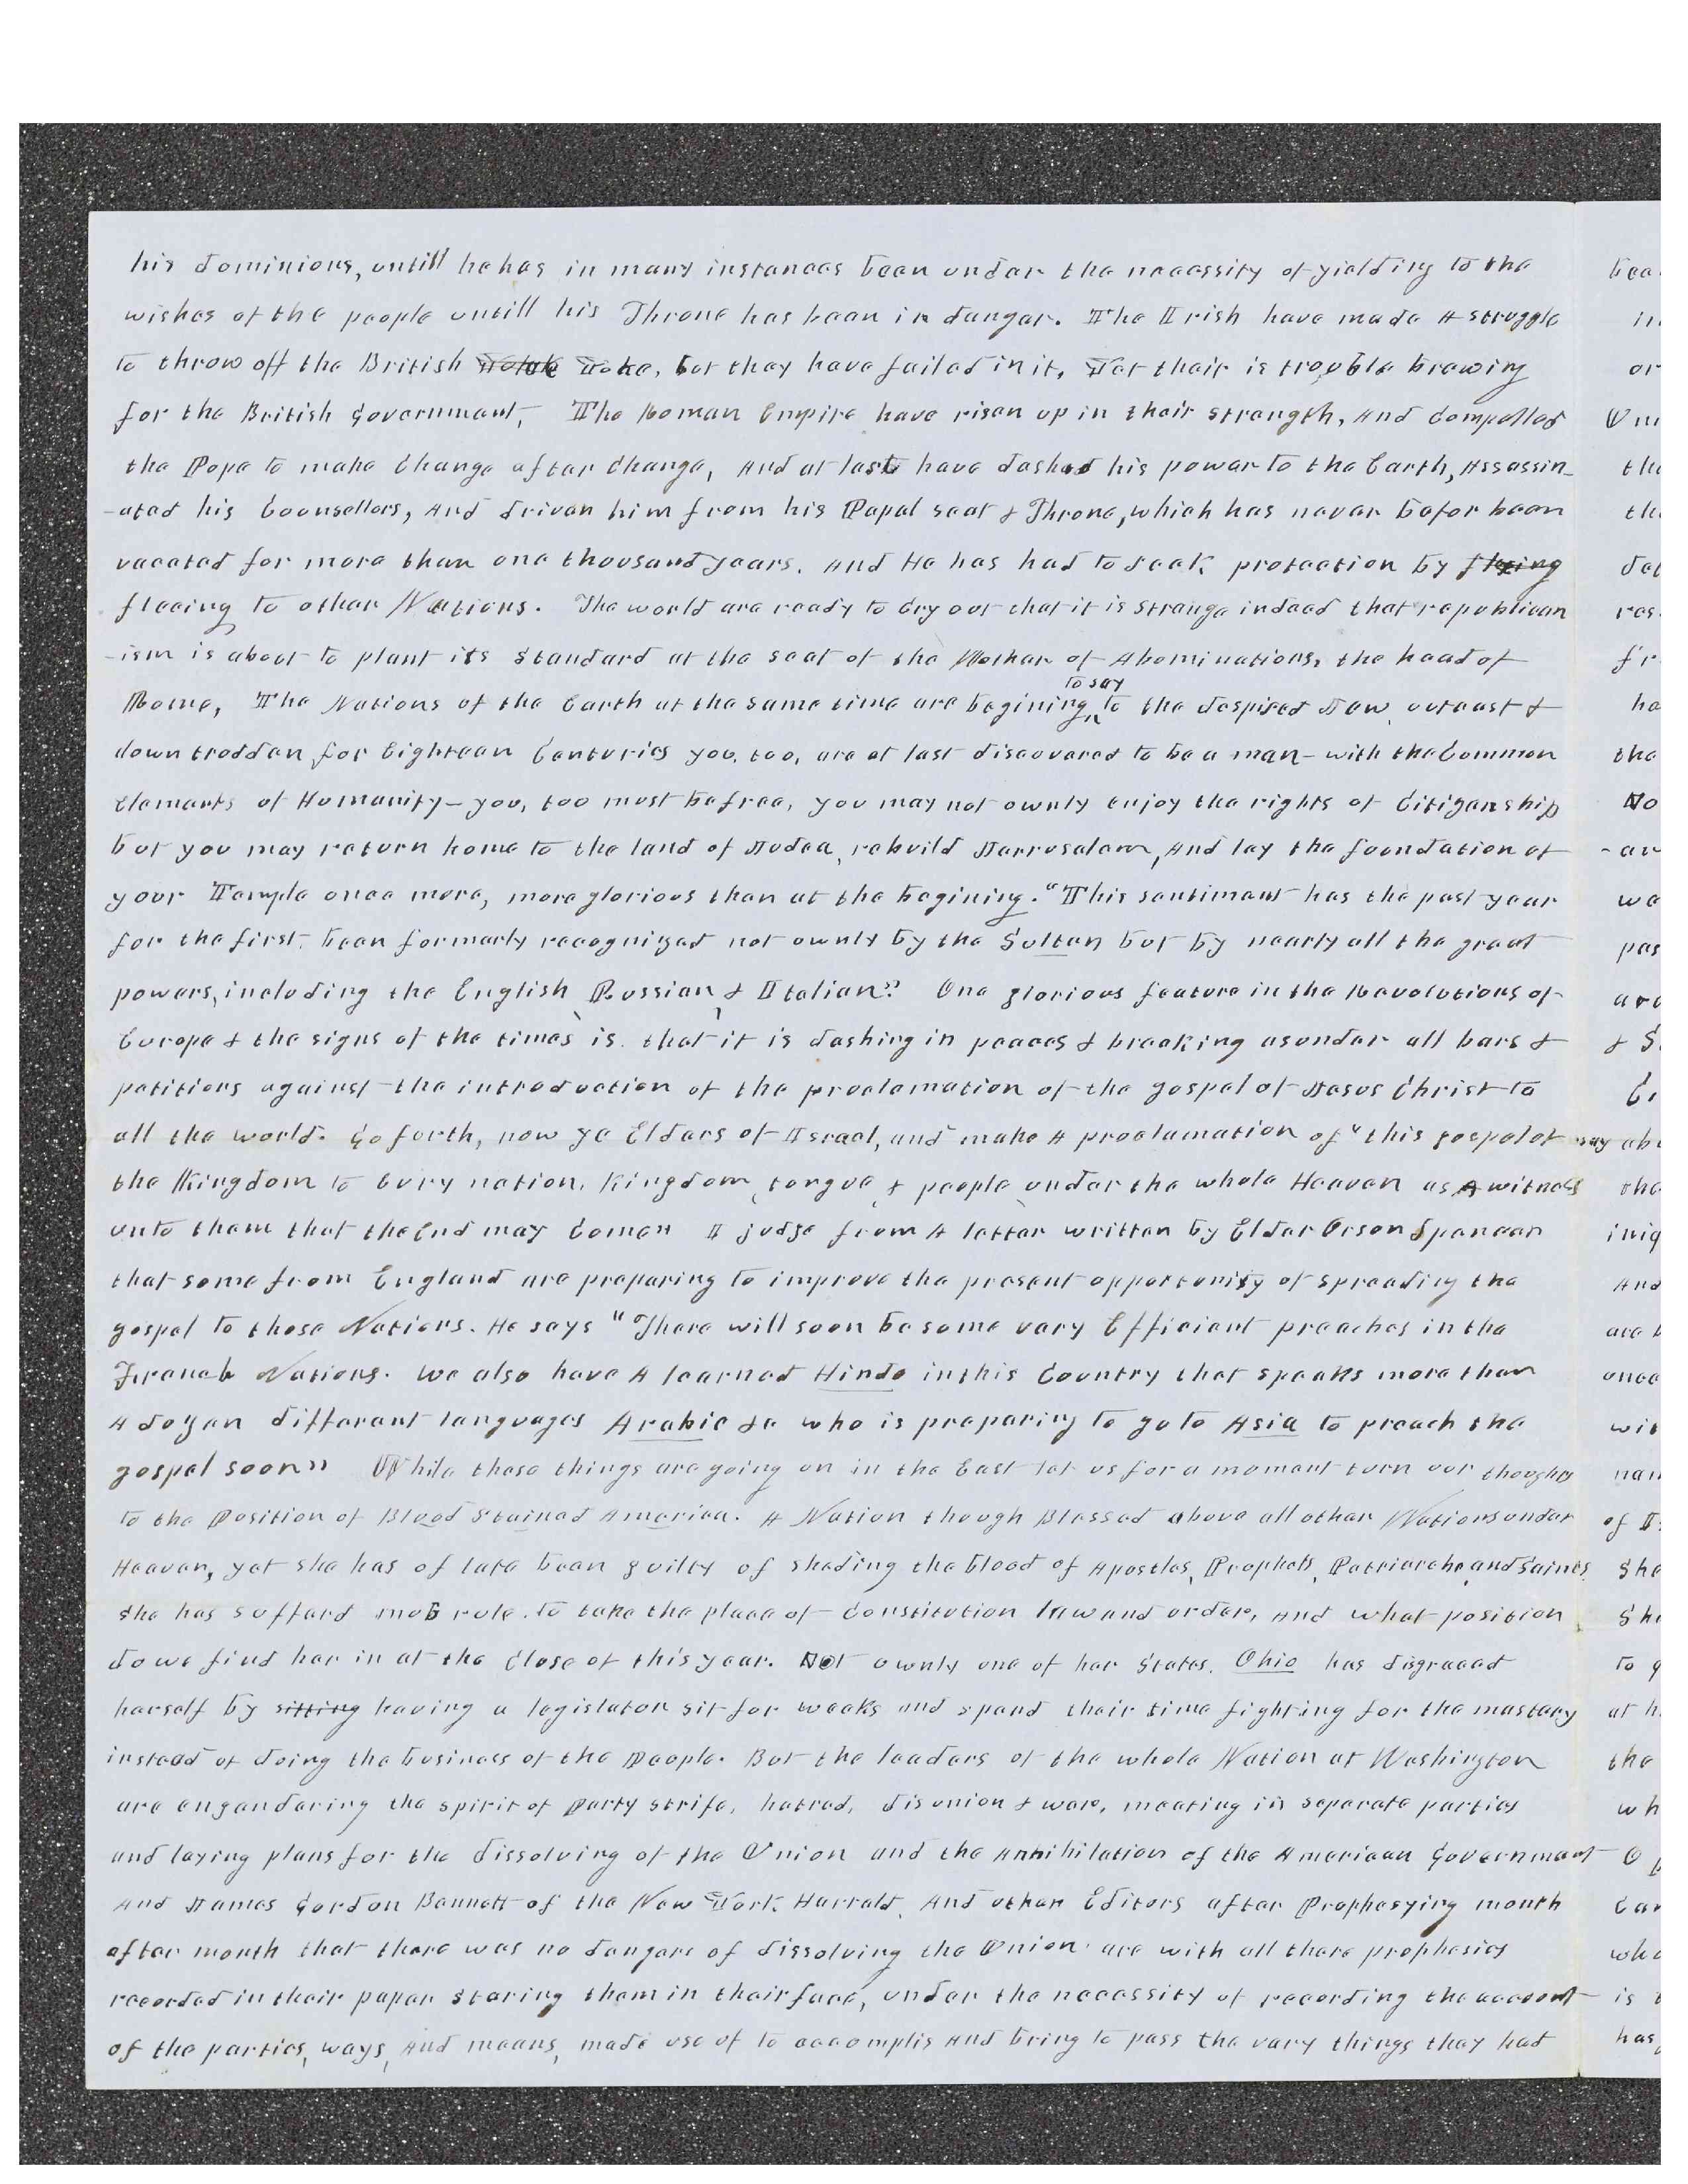 his dominions, untill he has in many instances been under the necessity of yielding to the
wishes of the people untill his Throne has been in danger. The Irish have made A struggle
to throw off the British Yoke, but they have failed in it, Yet their is trouble brewing
for the British Government, The Roman Empire have risen up in their strength, And Compelled
the Pope to make Change after Change, And at last have dashed his power to the Earth, Assassin-
-ated his Counsellors, And driven him from his Papal seat & Throne, which has never befor been
vacated for more than one thousand years. And He has had to seek protection by flying
fleeing to other Nations. The world are ready to Cry out that it is strange indeed that republican
-ism is about to plant its Standard at the seat of the Mother of Abominations, the head of
Rome, The Nations of the Earth at the same time are begining to say to the despised Jew, outcast &
down trodden for Eighteen Centuries you, too, are at last discovered to be a man— with the Common
Elements of Humanity— you, too must be free, you may not ownly enjoy the rights of Citizenship
but you may return home to the land of Judea, rebuild Jarrusalem, And lay the foundation of
your Temple once more, more glorious than at the begining. "This sentiment has the past year
for the first, been formerly recognized not ownly by the Sultan but by nearly all the great
powers, including the English, Russian, & Italian" One glorious feature in the Revolutions of
Europe & the signs of the times is. that it is dashing in peaces & breaking asunder all bars &
petitions against the introduction of the proclamation of the gospel of Jesus Christ to
all the world. Go forth, now ye Elders of Israel, and make A proclamation of "this gospel of
the Kingdom to Evry nation, Kingdom, tongue, & people under the whole Heaven as A witness
unto them that the End may Come" I judge from A letter written by Elder Orson Spencer
that some from England are preparing to improve the present opportunity of spreading the
gospel to those Nations. He says "There will soon be some very Efficient preaches in the
French Nations. We also have A learned Hindo in this Country that speaks more than
A dozen different languages Arabic &c who is preparing to go to Asia to preach the
gospel soon" While these things are going on in the East let us for a moment turn our thoughts
to the Position of Blood Stained America. A Nation though Blessed above all other Nations under
Heaven, yet she has of late been guilty of sheding the blood of Apostles, Prophets, Patriarchs, and Saints,
she has sufferd mob rule. to take the place of Constitution law and order, And what position
do we find her in at the Close of this year. Not ownly one of her States, Ohio has disgraced
herself by sitting having a legislator sit for weeks and spend their time fighting for the mastery
instead of doing the business of the People. But the leaders of the whole Nation at Washington
are engendering the spirit of party strife, hatred, disunion & ware, meeting in separate parties
and laying plans for the dissolving of the Union and the Annihilation of the American Government
And James Gordon Bennett of the New York Harrald, And other Editors after Prophesying month
after month that there was no dangers of dissolving the Union are with all there prophesies
recorded in their paper staring them in their face, under the necessity of recording the account
of the parties, ways, And means, made use of to accomplis And bring to pass the very things they had